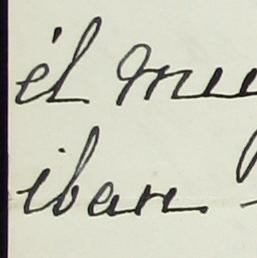 él muy
iban